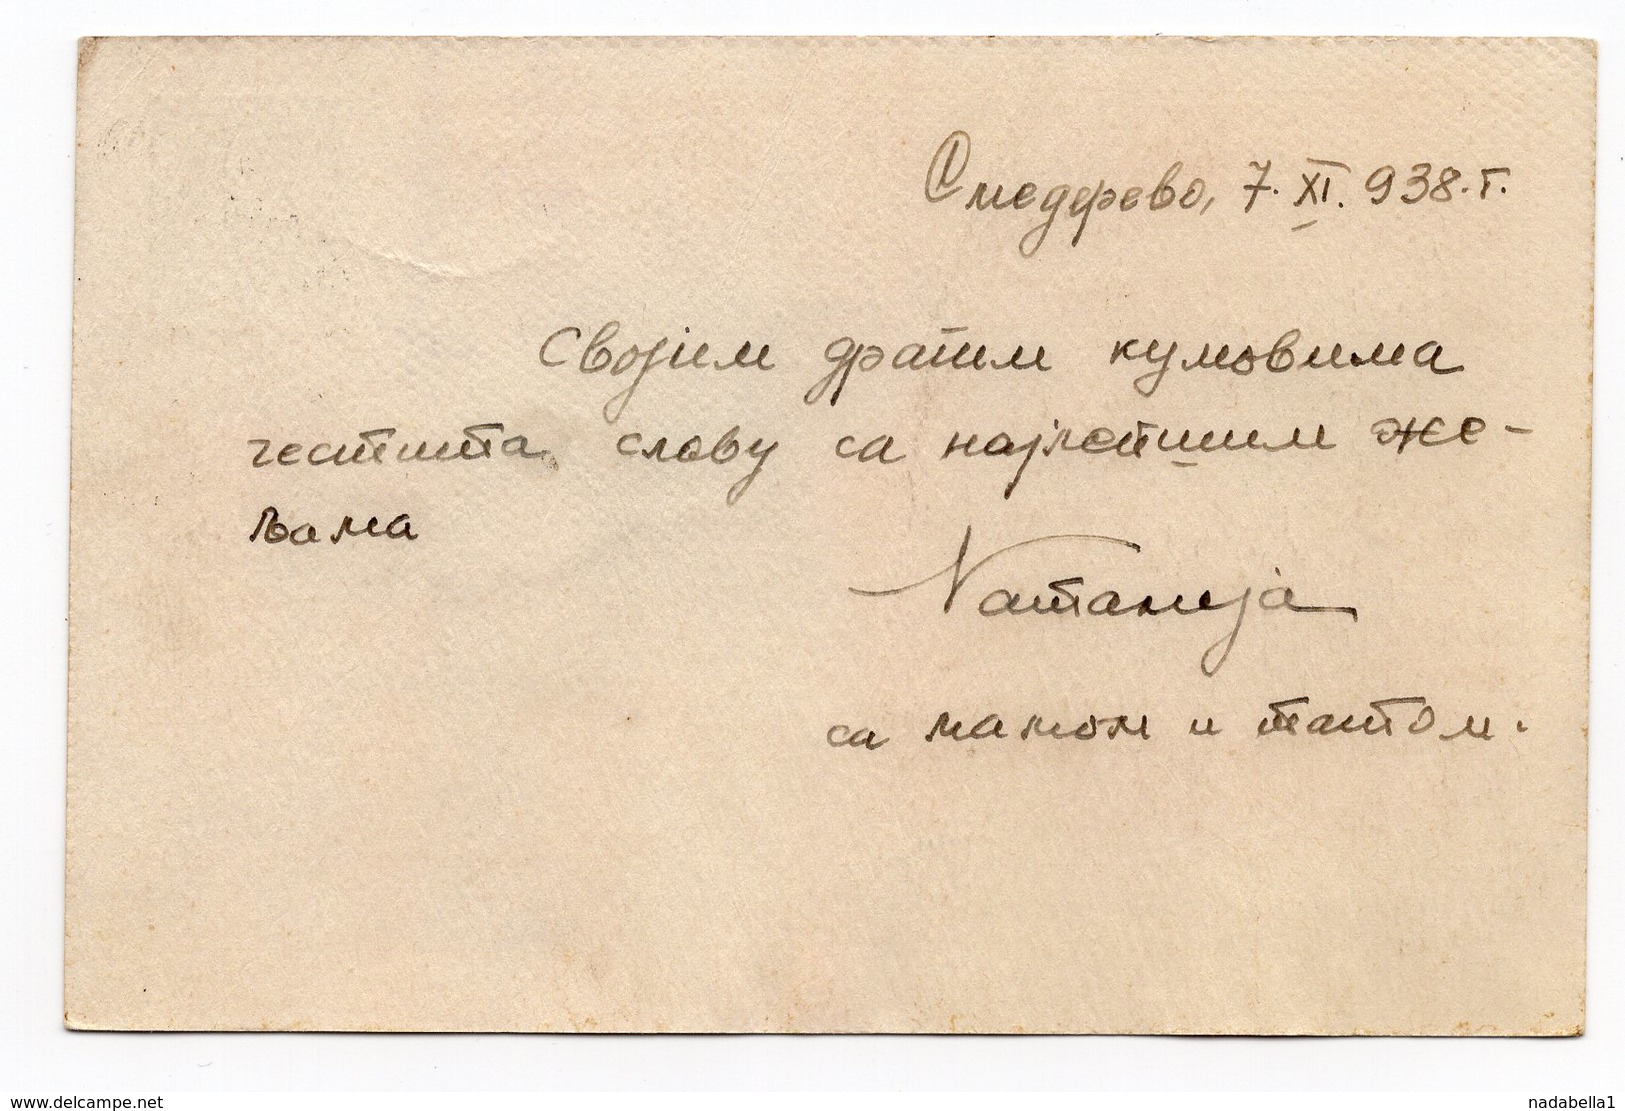 Смедерево, 7. XI. 938. г.
Својим драгим кумовима
честита славу са најлепшим же-
љама
Натанија
са мамом и татом.
www.delcampe.net
nadabella1